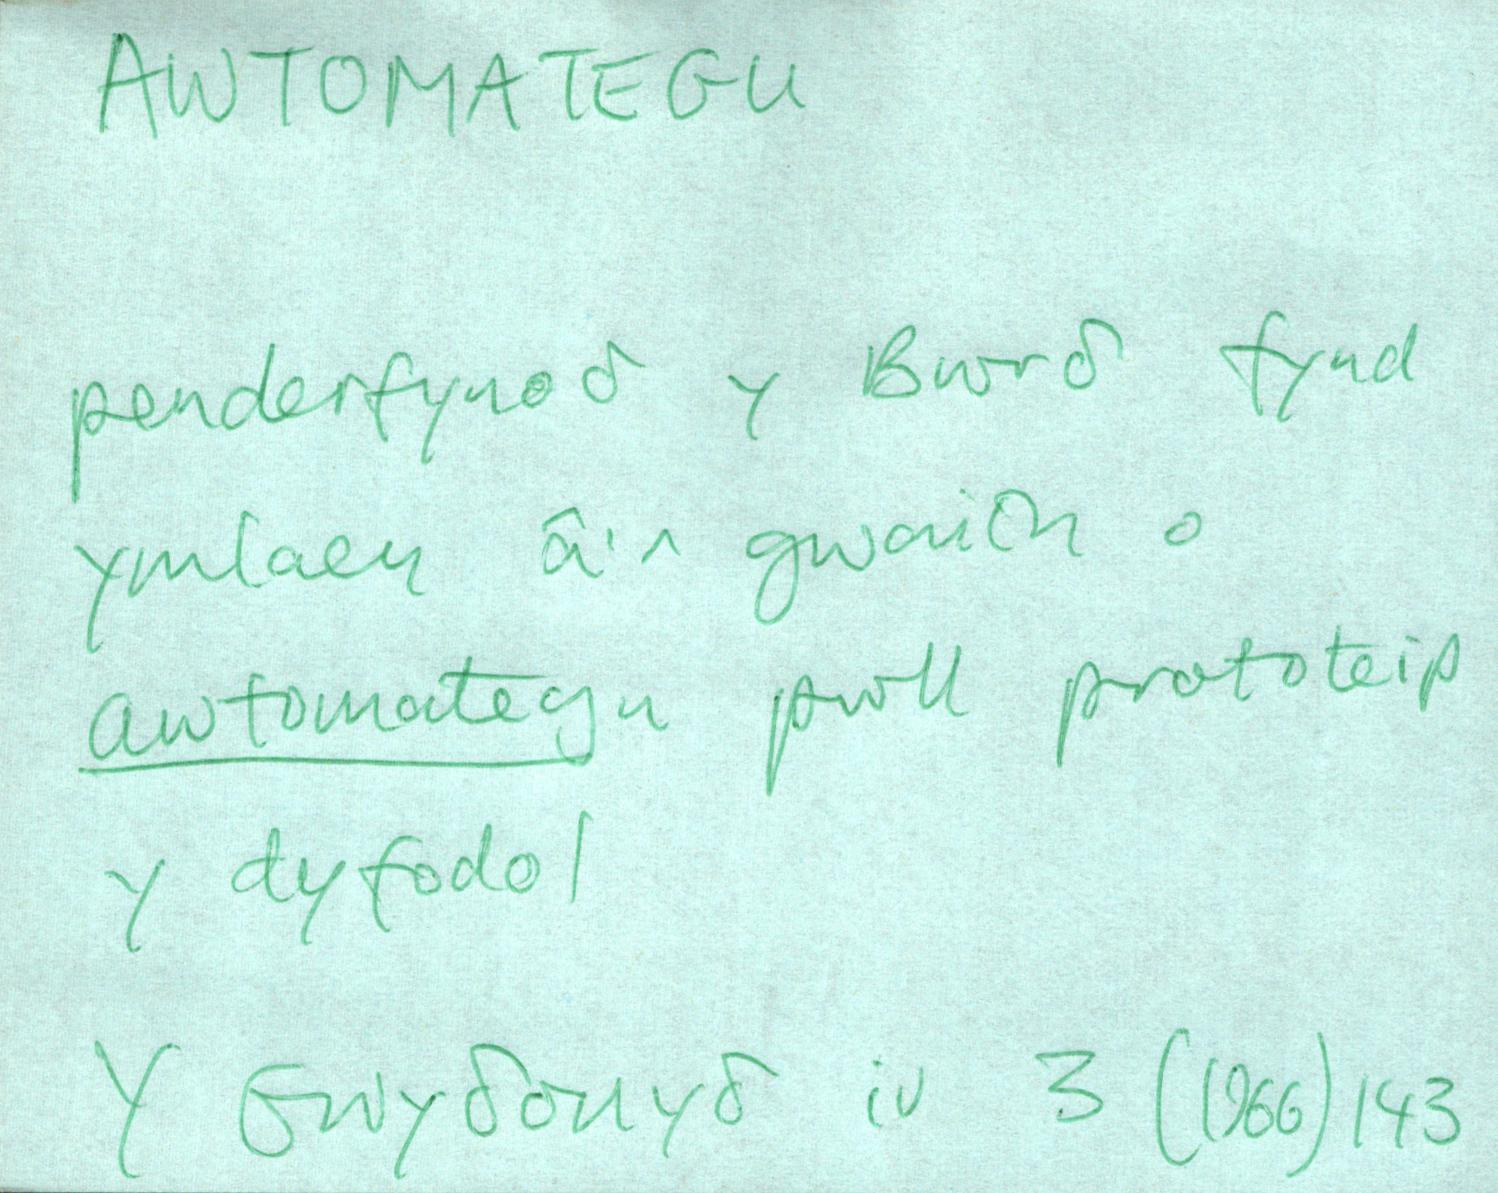 AWTOMATEGU
penderfynoδ y Bwrδ fynd
ymlaen â'r gwaith o
awtomategu pwll prototeip
y dyfodol
Y Gwyδonyδ iv 3 (1966) 143